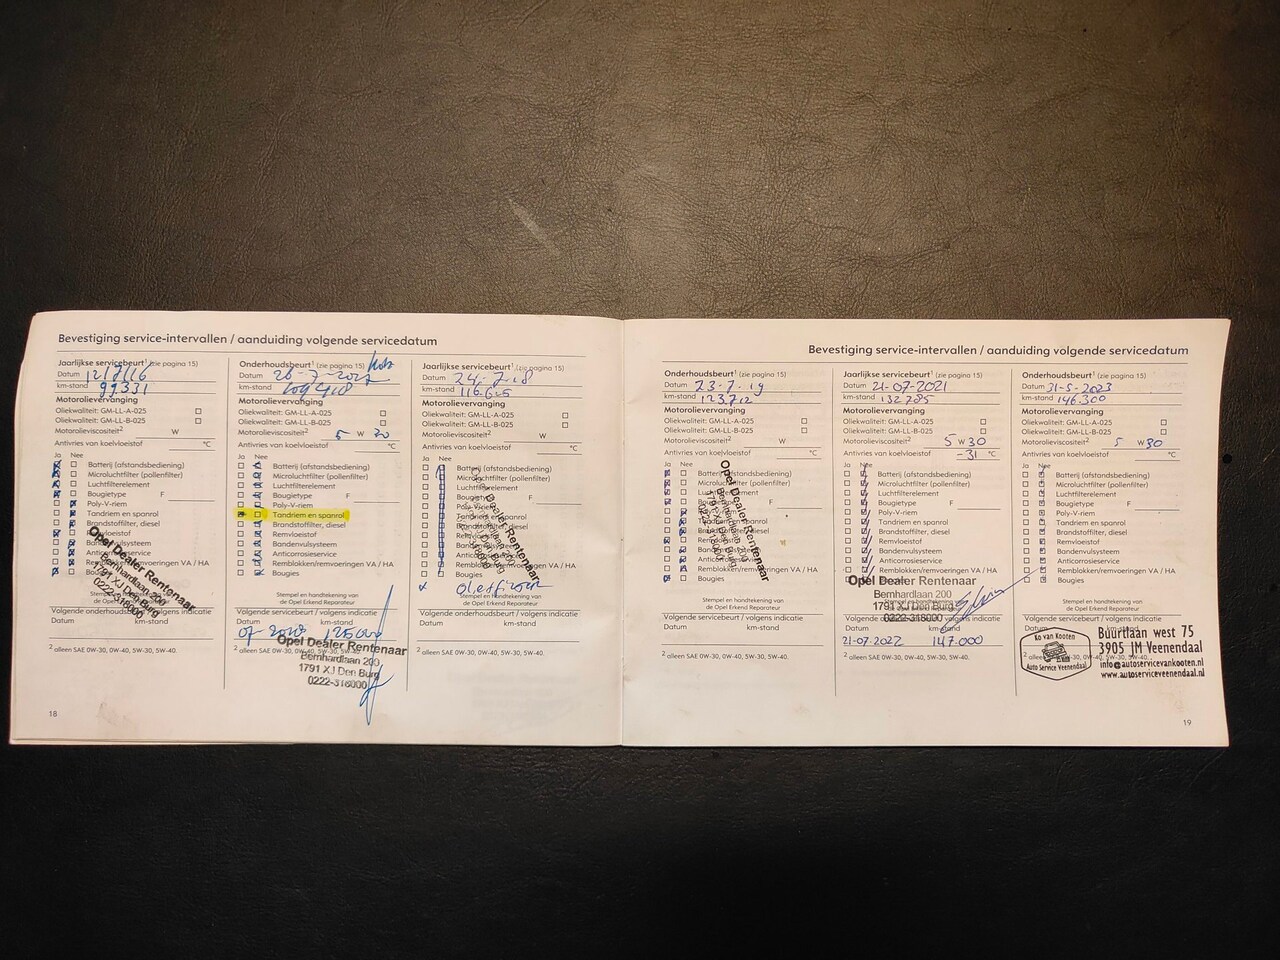 Bevestiging service-intervallen / aanduiding volgende servicedatum
Jaarlijkse servicebeurt¹ (zie pagina 15)
Datum 12/7/16
km-stand 99331
Motorolievervanging
Oliekwaliteit: GM-LL-A-025
Oliekwaliteit: GM-LL-B-025
Motorolieviscositeit² W
Antivries van koelvloeistof °C
Ja Nee
Batterij (afstandsbediening)
Microluchtfilter (pollenfilter)
Luchtfilterelement
Bougietype F
Poly-V-riem
Tandriem en spanrol
Brandstoffilter, diesel
Remvloeistof
Bandenvulsysteem
Anticorrosieservice
Remblokken/remvoeringen VA / HA
Opel Dealer Rentenaar
Bernhardlaan 200
1791 XJ Den Burg
0222-318000
Volgende onderhoudsbeurt / volgens indicatie
Datum km-stand
² alleen SAE 0W-30, 0W-40, 5W-30, 5W-40.
18
Onderhoudsbeurt¹ (zie pagina 15)
Datum
km-stand
Motorolievervanging
Oliekwaliteit: GM-LL-A-025
Oliekwaliteit: GM-LL-B-025
Motorolieviscositeit² 5 W 30
Antivries van koelvloeistof °C
Ja Nee
Batterij (afstandsbediening)
Microluchtfilter (pollenfilter)
Luchtfilterelement
Bougietype F
Poly-V-riem
Tandriem en spanrol
Brandstoffilter, diesel
Remvloeistof
Bandenvulsysteem
Anticorrosieservice
Remblokken/remvoeringen VA / HA
Bougies
Stempel en handtekening van
de Opel Erkend Reparateur
Volgende servicebeurt / volgens indicatie
Datum km-stand
Opel Dealer Rentenaar
Bernhardlaan 200
1791 XJ Den Burg
0222-318000
Jaarlijkse servicebeurt¹ (zie pagina 15)
Datum 24-7-18
km-stand
Motorolievervanging
Oliekwaliteit: GM-LL-A-025
Oliekwaliteit: GM-LL-B-025
Motorolieviscositeit² W
Antivries van koelvloeistof °C
Ja Nee
Batterij (afstandsbediening)
Microluchtfilter (pollenfilter)
Luchtfilterelement
Bougietype F
Poly-V-riem
Tandriem en spanrol
Brandstoffilter, diesel
Remvloeistof
Bandenvulsysteem
Anticorrosieservice
Remblokken/remvoeringen VA / HA
Bougies
Opel Dealer Rentenaar
Stempel en handtekening van
de Opel Erkend Reparateur
Volgende onderhoudsbeurt / volgens indicatie
Datum km-stand
² alleen SAE 0W-30, 0W-40, 5W-30, 5W-40.
Bevestiging service-intervallen / aanduiding volgende servicedatum
Onderhoudsbeurt¹ (zie pagina 15)
Datum 23-7-19
km-stand 123712
Motorolievervanging
Oliekwaliteit: GM-LL-A-025
Oliekwaliteit: GM-LL-B-025
Motorolieviscositeit² W
Antivries van koelvloeistof °C
Ja Nee
Batterij (afstandsbediening)
Microluchtfilter (pollenfilter)
Luchtfilterelement
Bougietype F
Poly-V-riem
Tandriem en spanrol
Brandstoffilter, diesel
Remvloeistof
Bandenvulsysteem
Anticorrosieservice
Remblokken/remvoeringen VA / HA
Bougies
Opel Dealer Rentenaar
Stempel en handtekening van
de Opel Erkend Reparateur
Volgende servicebeurt / volgens indicatie
Datum km-stand
² alleen SAE 0W-30, 0W-40, 5W-30, 5W-40.
Jaarlijkse servicebeurt¹ (zie pagina 15)
Datum 21-07-2021
km-stand 132785
Motorolievervanging
Oliekwaliteit: GM-LL-A-025
Oliekwaliteit: GM-LL-B-025
Motorolieviscositeit² 5 W 30
Antivries van koelvloeistof -31 °C
Ja Nee
Batterij (afstandsbediening)
Microluchtfilter (pollenfilter)
Luchtfilterelement
Bougietype F
Poly-V-riem
Tandriem en spanrol
Brandstoffilter, diesel
Remvloeistof
Bandenvulsysteem
Anticorrosieservice
Remblokken/remvoeringen VA / HA
Opel Dealer Rentenaar
Bernhardlaan 200
1791 XJ Den Burg
0222-318000
Datum km-stand
21-07-2022 147.000
² alleen SAE 0W-30, 0W-40, 5W-30, 5W-40.
Onderhoudsbeurt¹ (zie pagina 15)
Datum 31-5-2023
km-stand 146.300
Motorolievervanging
Oliekwaliteit: GM-LL-A-025
Oliekwaliteit: GM-LL-B-025
Motorolieviscositeit² 5 W 30
Antivries van koelvloeistof °C
Ja Nee
Batterij (afstandsbediening)
Microluchtfilter (pollenfilter)
Luchtfilterelement
Bougietype F
Poly-V-riem
Tandriem en spanrol
Brandstoffilter, diesel
Remvloeistof
Bandenvulsysteem
Anticorrosieservice
Remblokken/remvoeringen VA / HA
Bougies
Stempel en handtekening van
de Opel Erkend Reparateur
Volgende servicebeurt / volgens indicatie
Datum km-stand
Ko van Kooten
Auto Service Veenendaal
Buurtlaan west 75
3905 JM Veenendaal
info@autoservicevankooten.nl
www.autoserviceveenendaal.nl
19